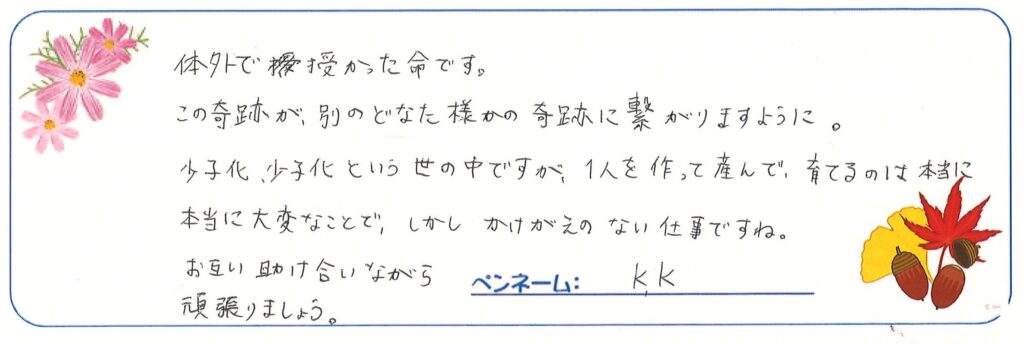 体外で授かった命です。
この奇跡が、別のどなた様かの奇跡に繋がりますように。
少子化、少子化という世の中ですが、1人を作って産んで、育てるのは本当に
本当に大変なことで、しかしかけがえのない仕事ですね。
お互い助け合いながら
頑張りましょう。
ペンネーム: K,K